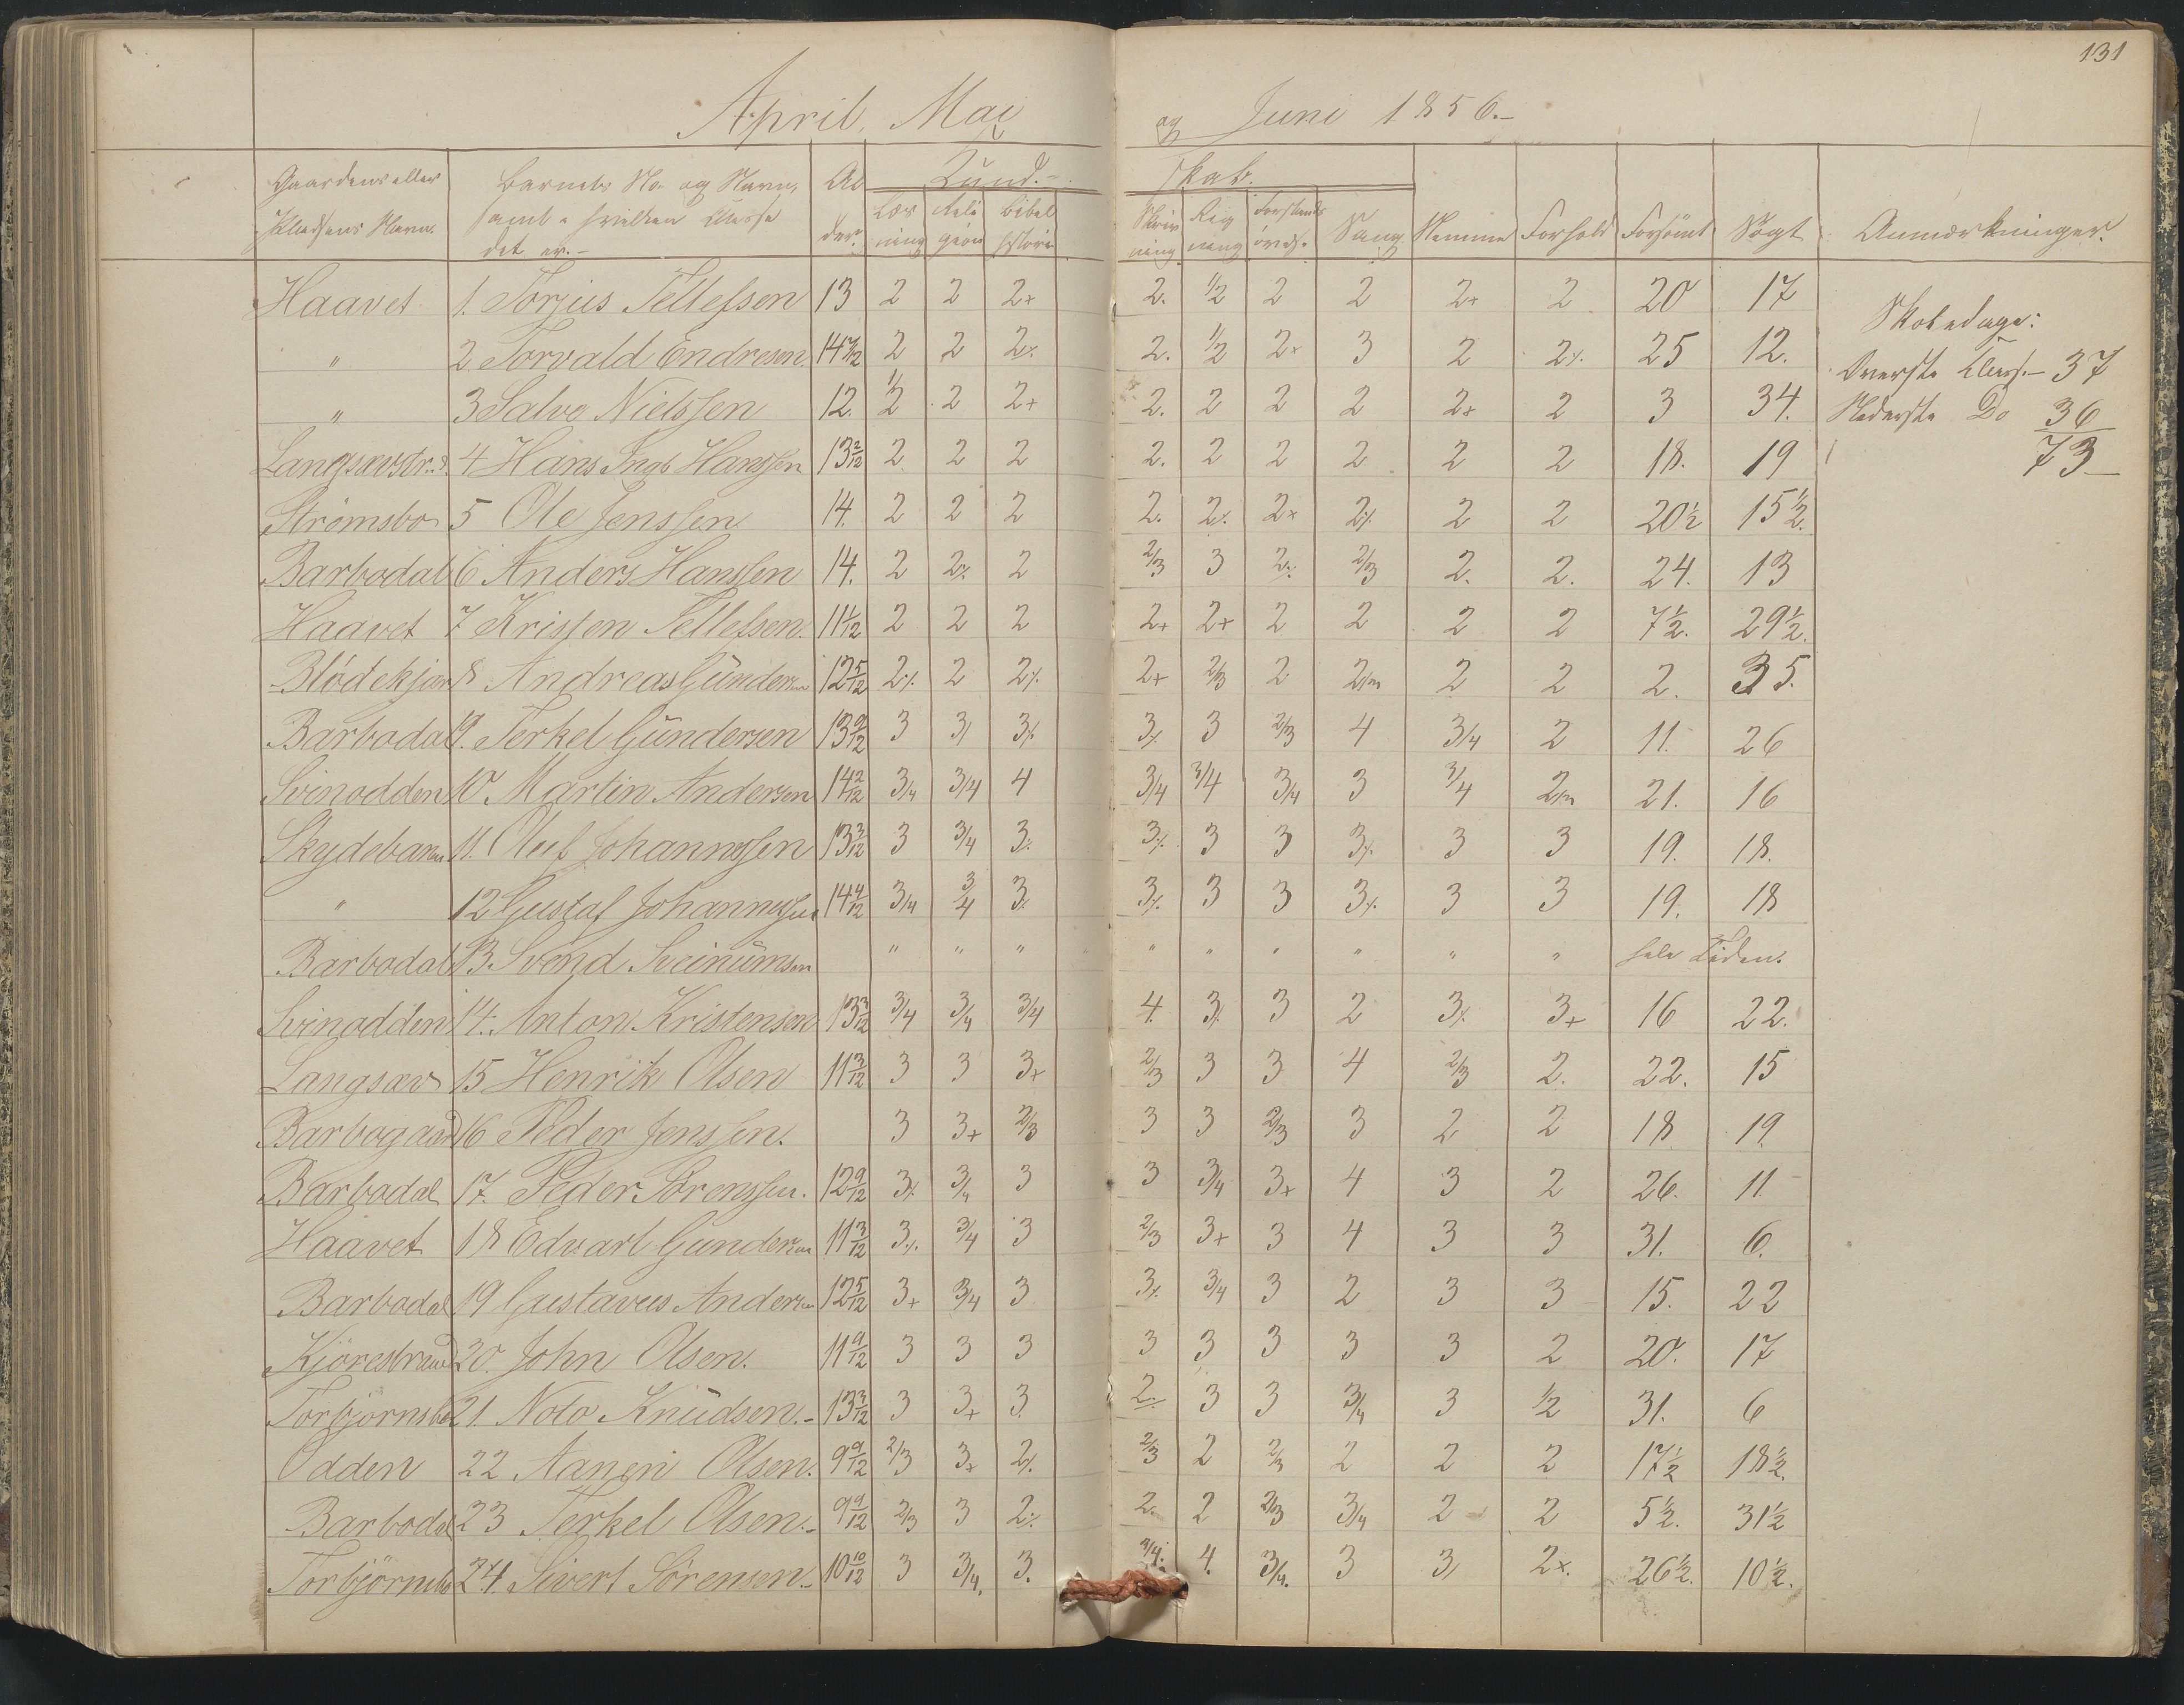 131
April, Mai og Juni 1856.-
Gaardens eller Pladsens Navn. Barnets No og Navn, samt i hvilken Classe det er.- Alder. Kundskab. Anmærkninger.
Læsning Religion Bibelhistorie Skrivning Regning Forstandsøvels. Sang Nemme Forhold Forsömt Sögt
Haavet 1. Torjus Tellefsen 13 2 2 2+ 2. 1/2 2 2 2+ 2 20 17
" 2 Torvald Endresen. 2 2 2% 2. 1/2 2+ 3 2 2% 25 12.
" 3 Salve Nielssen 12. 1/2 2 2+ 2. 2 2 2 2+ 2 3 34.
4 Hans Ingb Hanssen 13 2/12 2 2 2 2. 2 2 2 2 2 18. 19
Strømsbo 5 Ole Jenssen 14. 2 2 2 2. 2% 2+ 2% 2 2 20 1/2 15 1/2.
Barbodal 6 Anders Hanssen 14. 2 2% 2 2/3 3 2% 2/3 2. 2. 24. 13
Haavet 7 Krissen Tellefsen. 11 1/12 2 2 2 2+ 2+ 2 2 2 2 7 1/2. 29 1/2.
Blödekjær 8 Andreas Gündersen 12 5/12 2% 2 2% 2+ 2/3 2 2 2 2. 35.
Barbodal 9. Terkel Gündersen 13 9/12 3 3/ 3% 3% 3 2/3 4 3/4 2 11. 26
Svinodden 10 Martin Andersen 14 2/12 3/4 3/4 4 3/4 3/4 3/4 3 3/4 21. 16
Skydebanen 11. Oluf Johannessen 13 3/12 3 3/4 3% 3% 3 3 3% 3 3 19. 18.
" 12 Gustaf Johannessen 3/4 3/4 3% 3% 3 3 3% 3 3 19. 18
Barbodal 13. Svend Sveinümsen " " " " " " " " " hele Tiden.
Svinodden 14. Anton Kristensen 13 3/12 3/4 3/4 3/4 4. 3% 3 2 3% 3+ 16 22.
Langsæv 15 Henrik Olsen 11 3/12 3 3 3+ 2/3 3 3 4 2/3 2. 22. 15
Barbogaard 16 Peder Jenssen. 3 3+ 2/3 3 3 2/3 3 2 2 18 19.
Barbodal 17. Peder Sörenssen. 12 9/12 3% 3/4 3 3 3/4 3+ 4 3 2 26. 11.
Haavet 18 Edvart Gundersen 11 3/12 3% 3/4 3 2/3 3+ 3 4 3 3 31. 6.
Barbodal 19 Gustavus Andersen 12 5/12 3+ 3/4 3 3% 3/4 3 2 3 3 15. 22
Kjörestrand 20. John Olsen. 11 9/12 3 3 3 3 3 3 3 3 2 20. 17
Torbjörnsbo 21. Noto Knüdsen.- 13 3/12 3 3+ 3 2% 3 3 3/4 3 1/2 31. 6
Odden 22 Aanen Olsen. 9 9/12 2/3 3+ 2% 2/3 2 2/3 2 2 2 17 1/2 18 1/2.
Barbodal 23 Terkel Olsen.- 9 9/12 2/3 3 2% 2. 2 2/3 3/4 2 2 5 1/2. 31 1/2
Torbjörnsbo 24. Sivert Sörensen.- 10 10/12 3 3/4. 3. 3/4. 4. 3/4. 3 3/ 2+. 26 1/2. 10 1/2.
Skoledage:
Øverste Classe- 37
Nederste Do 36
73